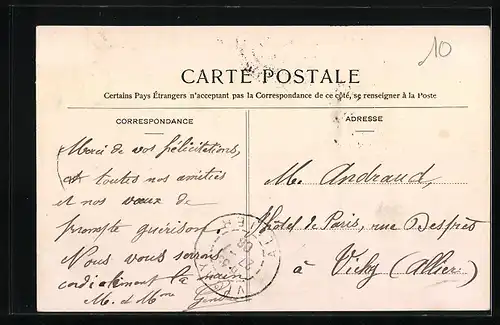 10
CARTE POSTALE
Certains Pays Étrangers n'acceptent pas la Correspondance de ce côté, se renseigner à la Poste
CORRESPONDANCE
Merci de vos félicitations,
et toutes nos amitiés
et nos vœux de
prompte guérison.
Nous vous serrons
cordialement la main
M. et Mme
ADRESSE
M. Andraud,
hôtel de Paris, rue Desprès
à Vichy (Allier)
VICHY
ALLIER